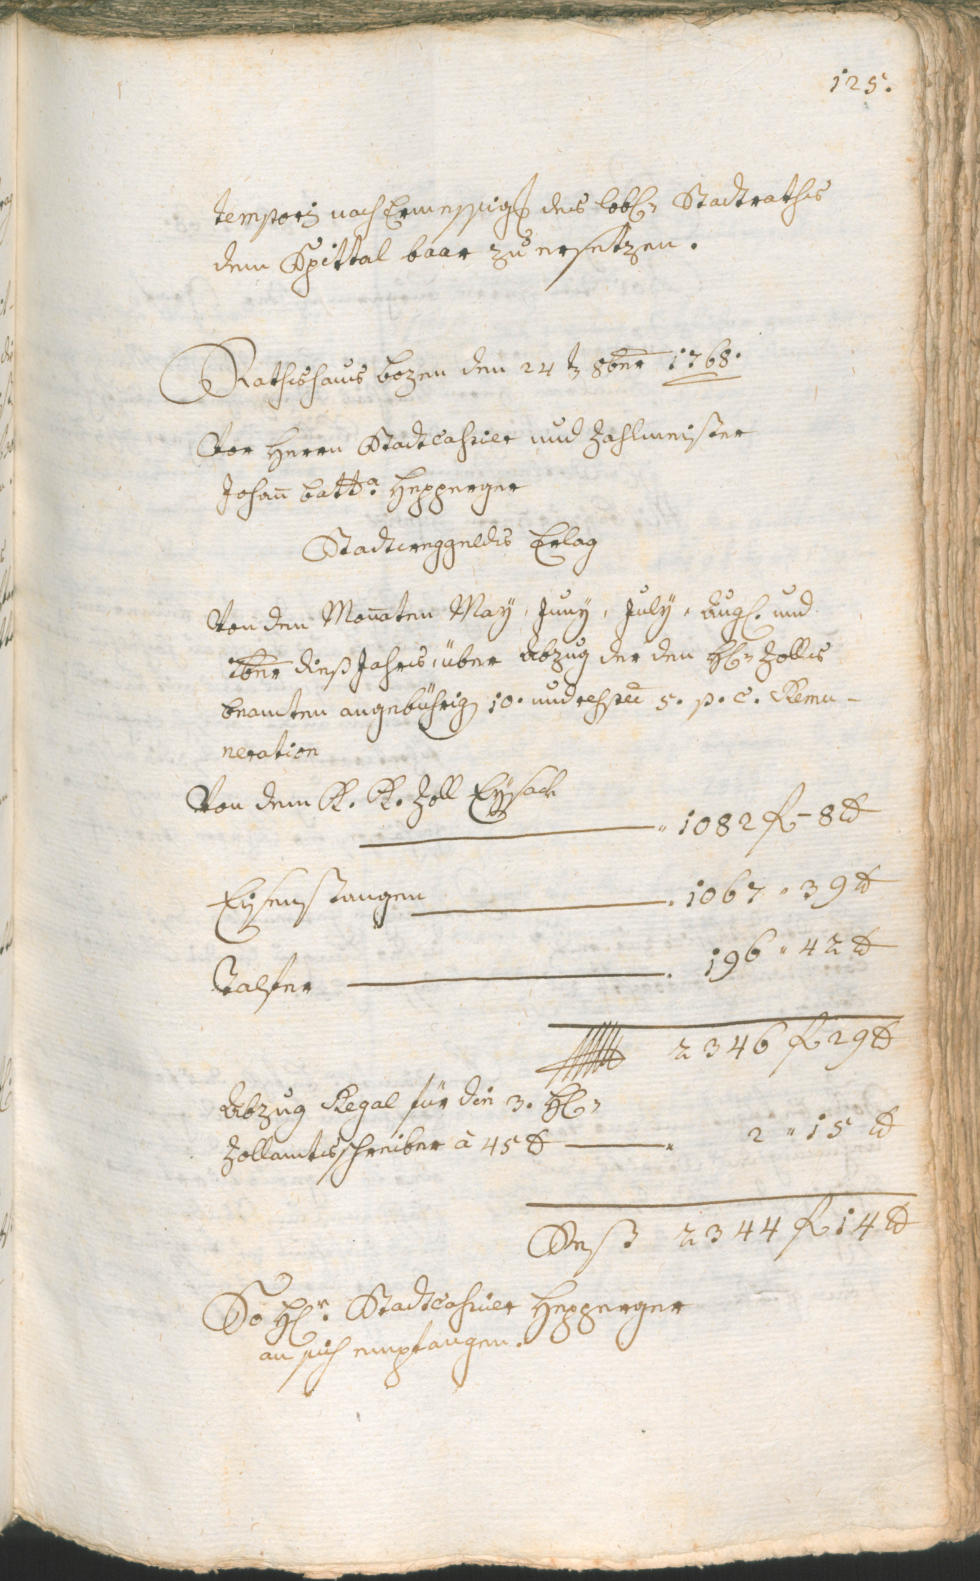 125.
tempori nach Ermessigg des lobl: Stadtraths
dem Spittal baar zu ersetzen.
Rathshaus Bozen den 24 t 8ber 1768.
Vor Herrn Stadtcassier und Zahlmeister
Johan̄ Batta: Hepperger
Stadtweggelds Erlag
Von den Monaten May, Juny, July, Aug. und
7ber dieß Jahrs, über Abzug der den H: Zolls
beamten angebührig 10. und respec 5. p. c. Remu-
neration
Von dem K. K. Zoll Eysack
1082 f - 8 x
Eysenstangen 1067 " 39 x
Talfer 196 " 42 x
2346 f 29 x
Abzug Regal für die 3. H:
Zollamtsschreiber à 45 x 2 " 15 x
Rest 2344 f 14 x
So Hr: Stadtcassier Hepperger
an sich empfangen.